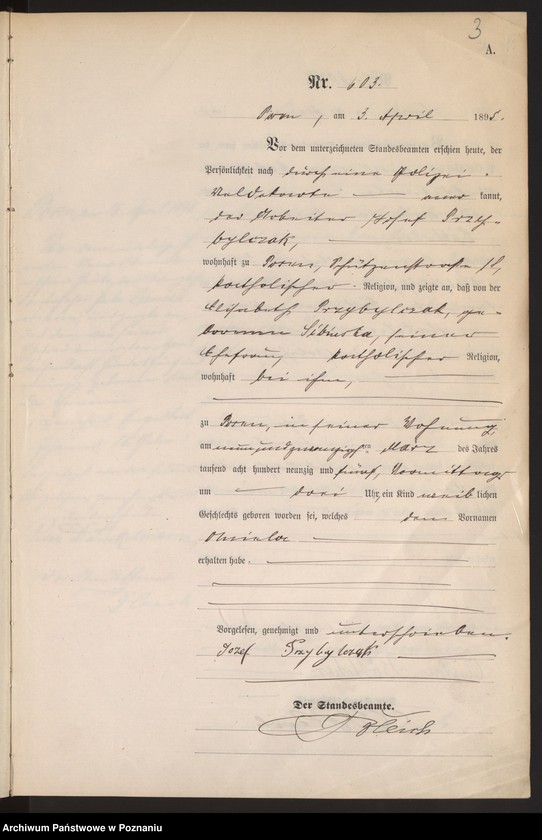 3
A.
Nr. 603.
Posen, am 3. April 1895.
Vor dem unterzeichneten Standesbeamten erschien heute, der
Persönlichkeit nach durch eine Polizei-
Meldekarte aner kannt,
der Arbeiter Josef Przy-
bylczak,
wohnhaft zu Posen, Schützenstraße
katholischer Religion, und zeigte an, daß von der
Elisabeth Przybylczak, ge-
borenen seiner
Ehefrau, katholischer Religion,
wohnhaft bei ihm,
zu Posen, in seiner Wohnung,
am neunundzwanzigsten März des Jahres
tausend acht hundert neunzig und fünf, Vormittags
um drei Uhr, ein Kind weib lichen
Geschlechts geboren worden sei, welches den Vornamen
erhalten habe.
Vorgelesen, genehmigt und unterschrieben.
Jozef Przybylczak
Der Standesbeamte.
Archiwum Państwowe w Poznaniu